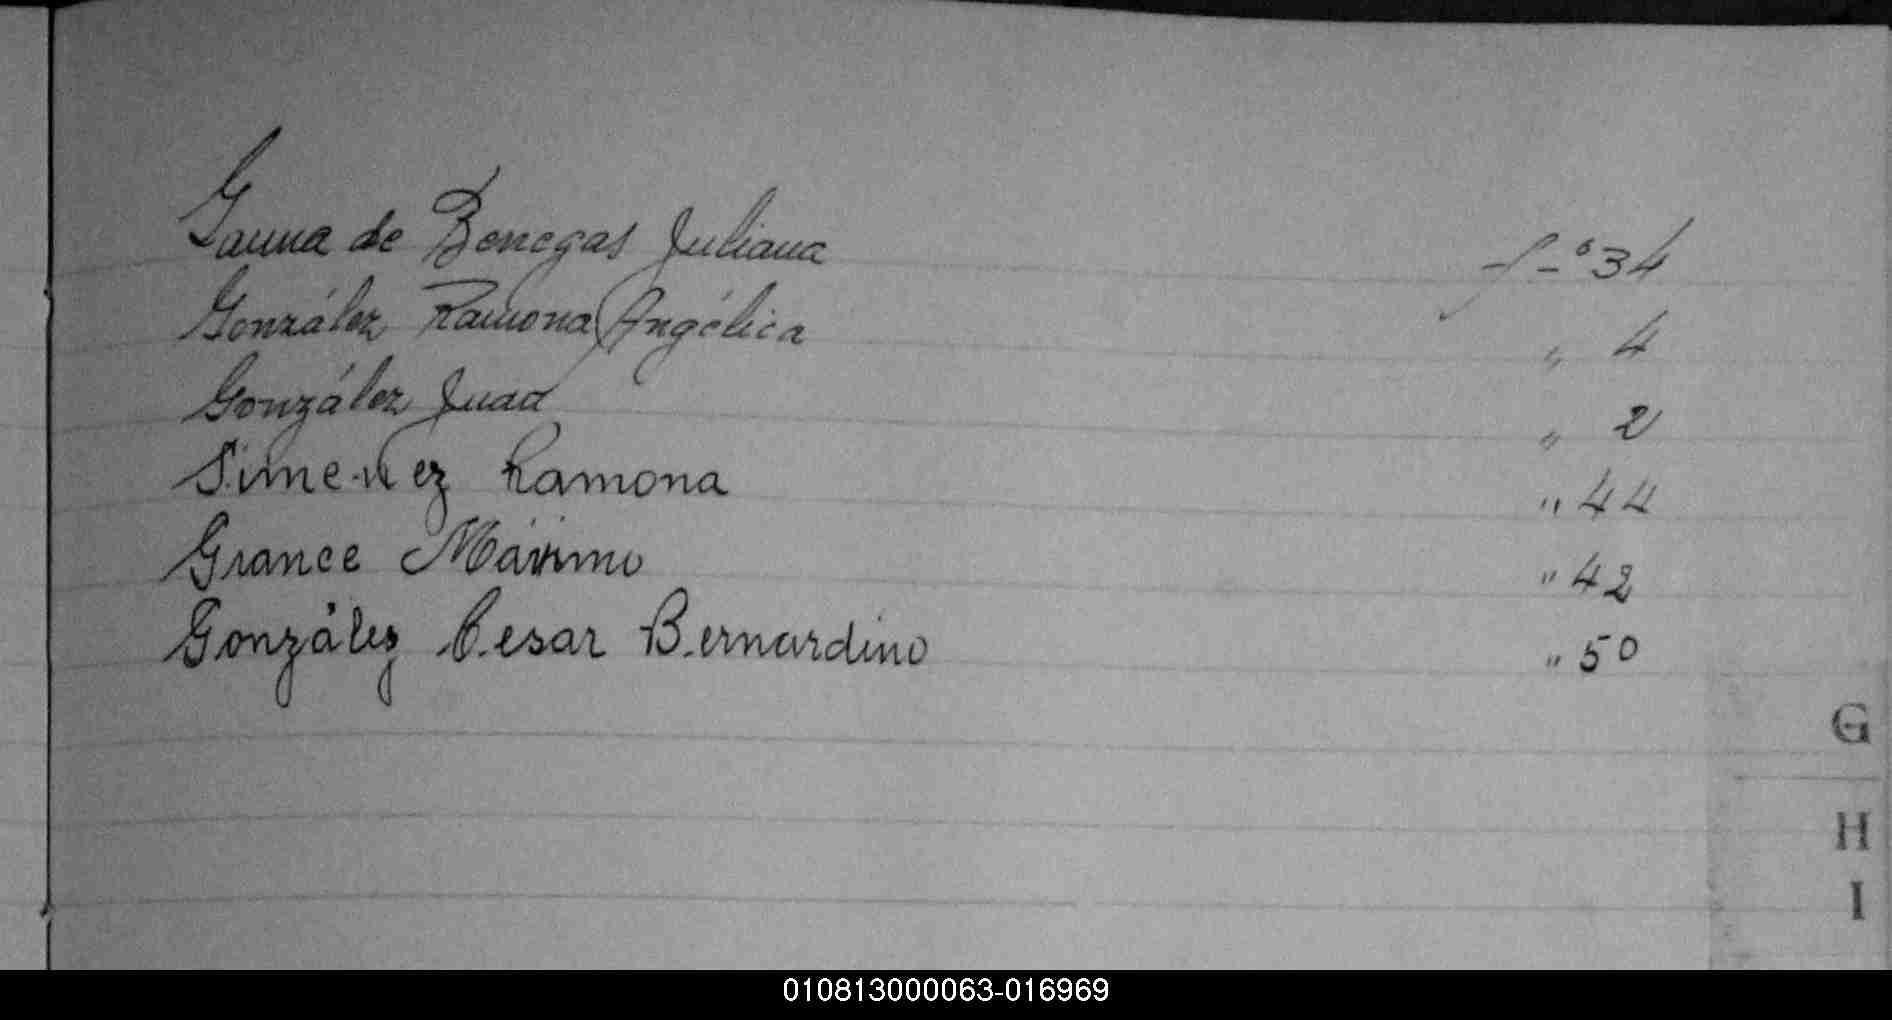 Gauna de Benegas Juliana f-° 34
González Ramona Angélica " 4
González Juan " 2
Simenez Ramona " 44
Grance Máximo " 42
González Cesar Bernardino " 50
G
H
I
010813000063-016969